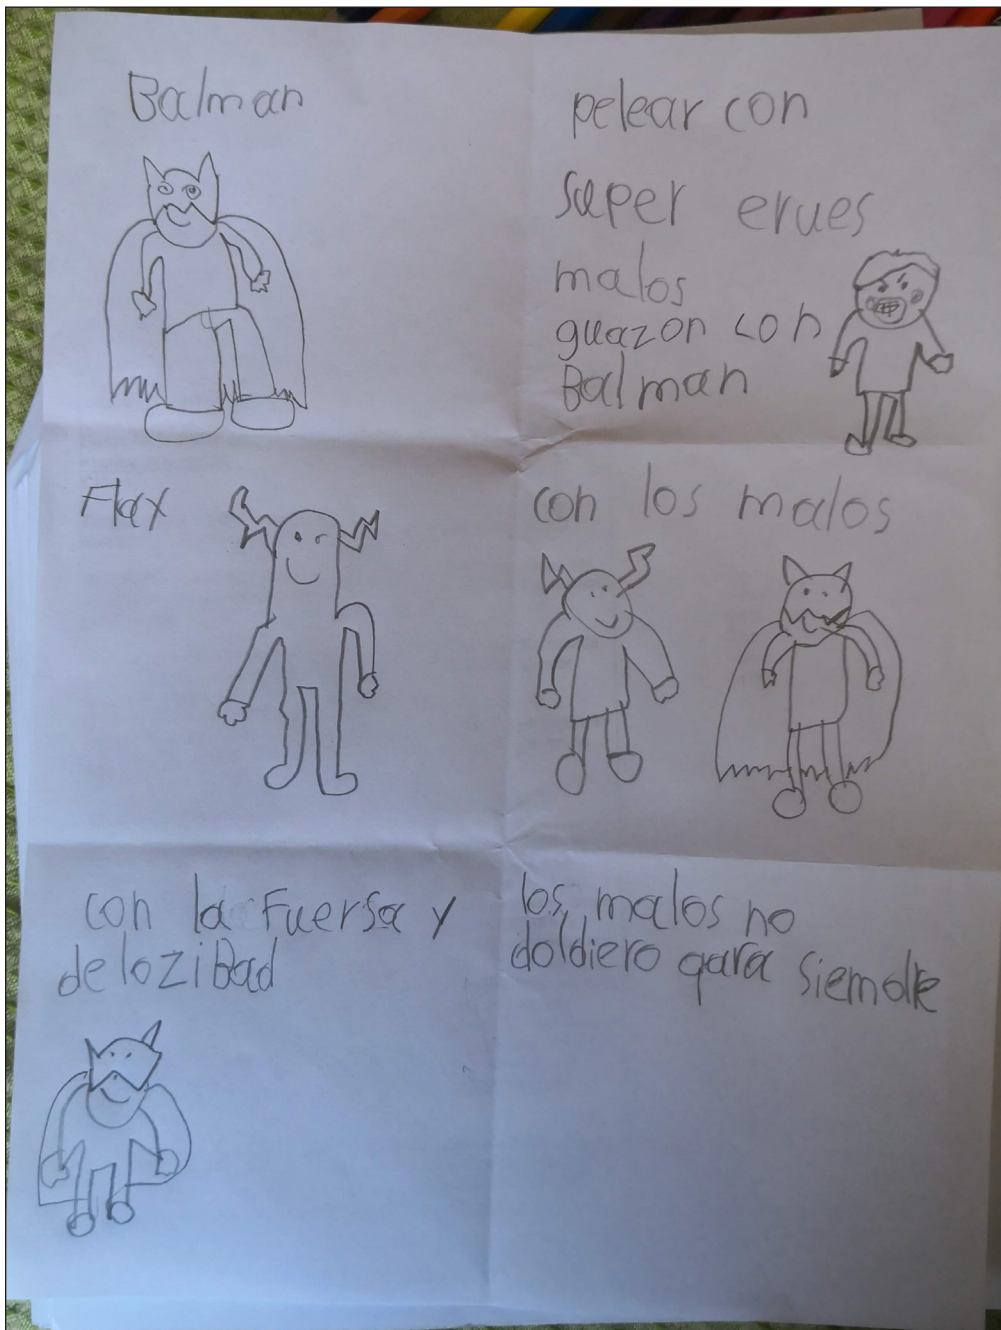 Balman
pelear con
super erues
malos
guazon con
Balman
Flax
con los malos
con la Fuersa y
delozibad
los malos no
doldiero qara siemdre